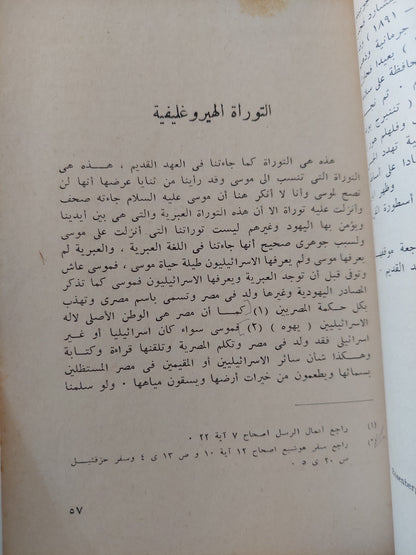 التوراة الهيروغليفية
هذه هى التوراة كما جاءتنا فى العهد القديم ، هذه هى
التوراة التى تنتسب الى موسى وقد رأينا من ثنايا عرضها أنها لن
تصح لموسى وأنا لا أنكر هنا أن موسى عليه السلام جاءته صحف
وأنزلت عليه توراة الا أن هذه التوراة العبرية والتى هى بين أيدينا
ويؤمن بها اليهود وغيرهم ليست توراتنا التى أنزلت على موسى
ولسبب جوهرى صحيح أنها جاءتنا فى اللغة العبرية ، والعبرية لم
يعرفها موسى ولم يعرفها الاسرائيليون طيلة حياة موسى ، فموسى عاش
وتوفى قبل أن توجد العبرية ويعرفها الاسرائيليون فموسى كما تذكر
المصادر اليهودية وغيرها ولد فى مصر وتسمى باسم مصرى وتهذب
بكل حكمة المصريين (١) كما أن مصر هى الوطن الأصلى لاله
الاسرائيليين ( يهوه ) (٢) فموسى سواء كان اسرائيليا أو غير
اسرائيلى فقد ولد فى مصر وتكلم المصرية وتلقنها قراءة وكتابة
وهكذا شأن سائر الاسرائيليين أو المقيمين فى مصر المستظلين
بسمائها ويطعمون من خيرات أرضها ويسقون مياهها . ولو سلمنا
(١) راجع اعمال الرسل اصحاح ٧ آية ٢٢ .
(٢) راجع سفر هوشع اصحاح ١٢ آية ١٠ و ص ١٣ ى ٤ وسفر حزقئيل
ص ٢٠ ى ٥ .
٥٧